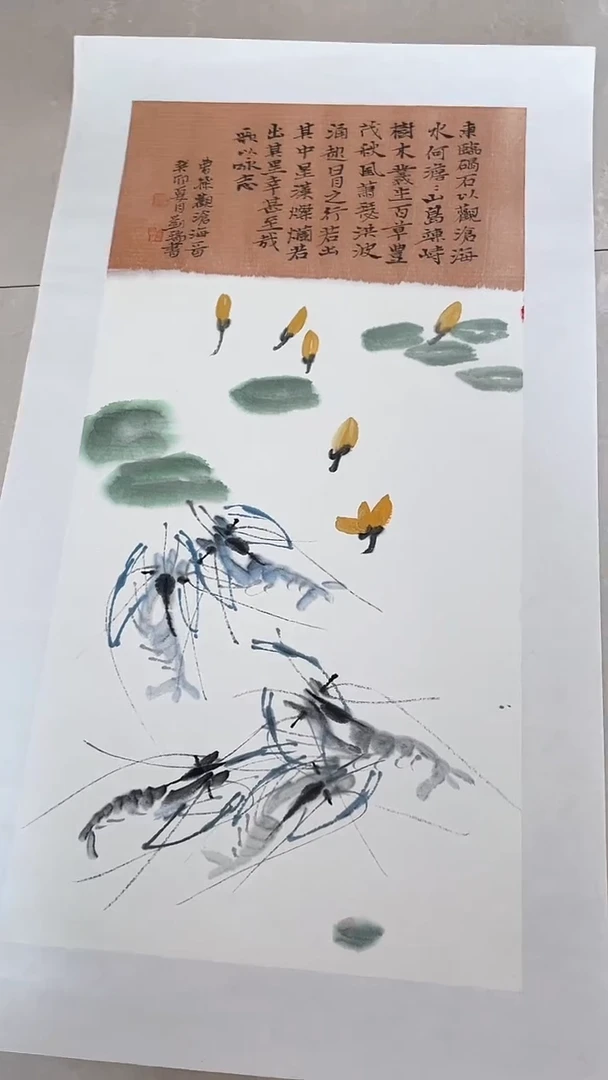 東臨碣石以觀滄海
水何澹〻山島竦峙
樹木叢生百草豐
茂秋風蕭瑟洪波
涌起日月之行若出
其中星漢燦爛若
出其里幸甚至哉
歌以咏志
曹操觀滄海
癸卯夏月瑞書